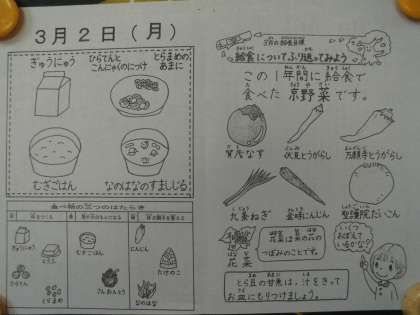 3月2日(月)
ぎゅうにゅう
ひらてんと
こんにゃくのにつけ
とらまめの
あまに
むぎごはん
なのはなのすましじる
食べ物の三つのはたらき
ぎゅうにゅう
むぎごはん
にんじん
とらまめ
さんおんとう
たけのこ
なのはな
3月の給食目標
給食についてふり返ってみよう
この1年間に給食で
食べた京野菜です。
賀茂なす
伏見とうがらし
万願寺とうがらし
九条ねぎ
金時にんじん
聖護院だいこん
花菜
花菜は菜の花の
つぼみのことです。
いくつ
おぼえて
いるかな?
とら豆の甘煮は、汁をきって
お皿にもりつけましょう。